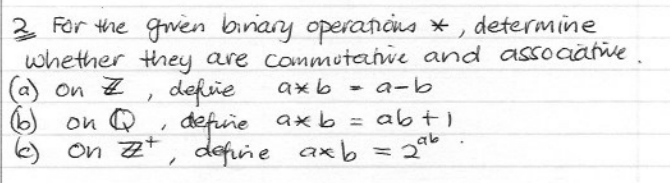 2 For the given binary operations *, determine
whether they are commutative and associative.
(a) on ℤ, define a*b = a-b
(b) on ℚ, define a*b = ab+1
(c) on ℤ⁺, define a*b = 2ᵃᵇ.